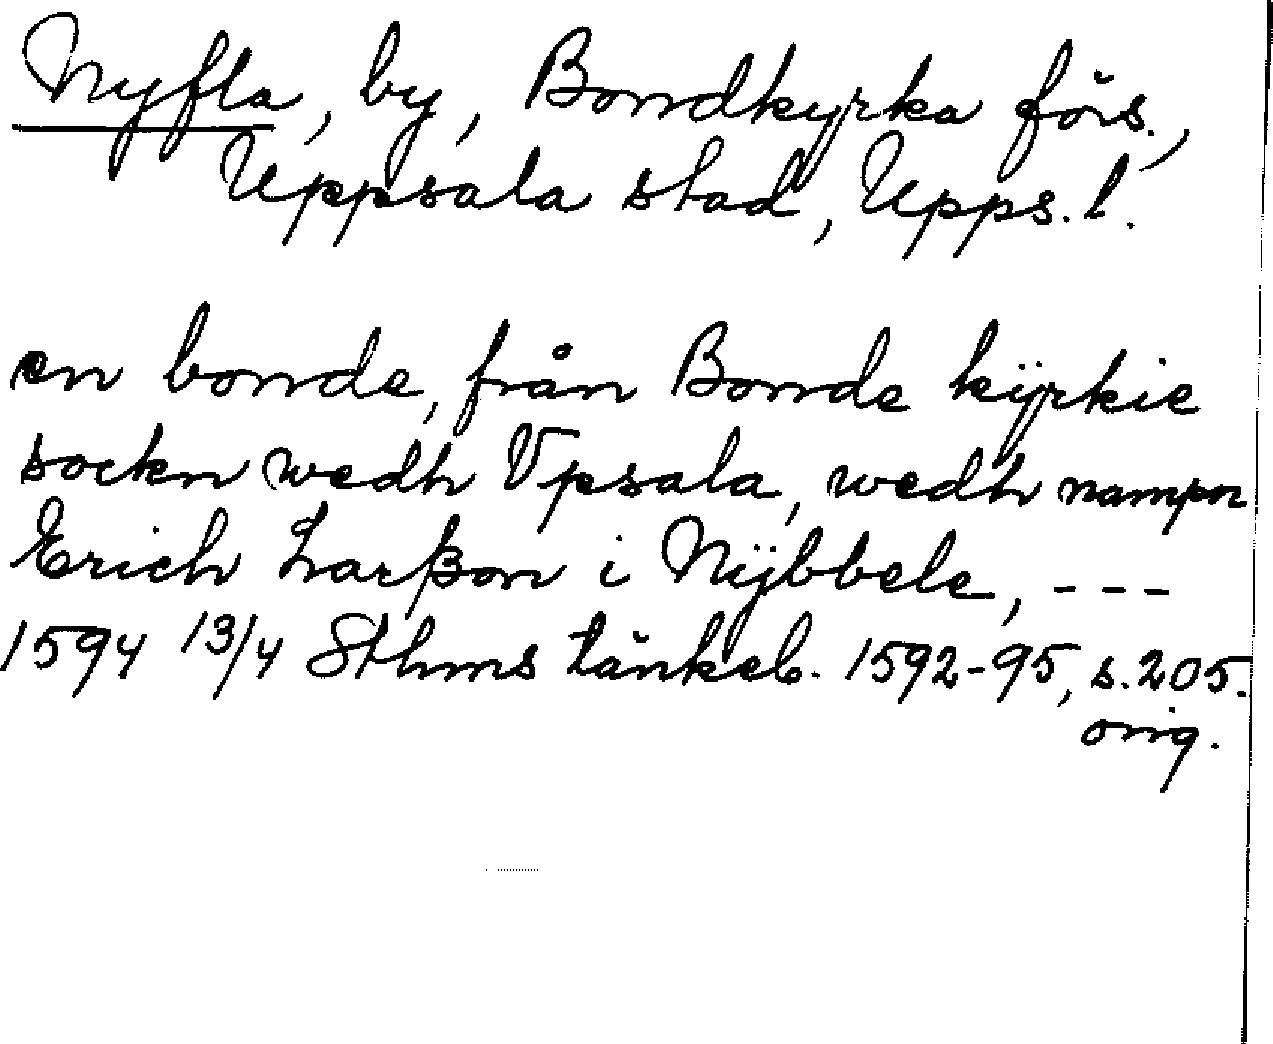 Nyfla, by, Bondkyrka förs.,
Uppsala stad, Upps. l.
en bonde, från Bonde kÿrkie
sockn wedh Vpsala, wedh nampn
Erich Larßon i Nÿbbele, ---
1594 13/4 Sthms tänkeb. 1592-95, s. 205.
orig.